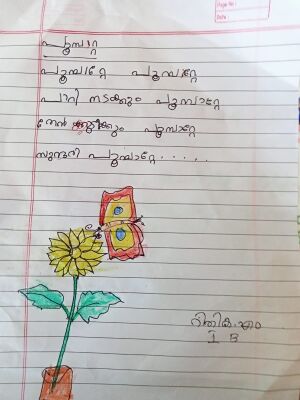 Page No :
Date :
പൂമ്പാറ്റ
പൂമ്പാറ്റേ പൂമ്പാറ്റേ
പാറി നടക്കും പൂമ്പാറ്റേ
തേൻ കുടിക്കും പൂമ്പാറ്റേ
സുന്ദരി പൂമ്പാറ്റേ . . . . . .
I B